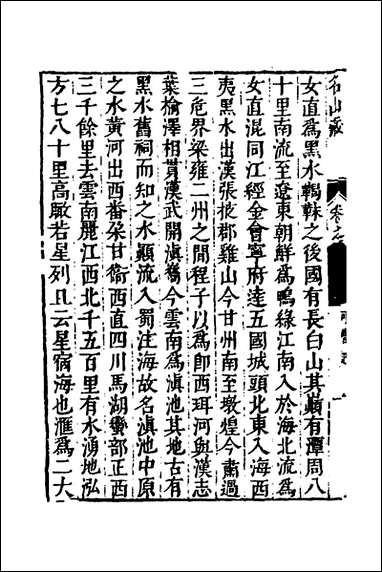 名山藏
女直為黑水靺鞨之後國有長白山其巔有潭周八
十里南流至遼東朝鮮為鴨綠江南入於海北流為
女直混同江經金會寧府達五國城頭北東入海西
夷黑水出漢張掖郡雞山今甘州南至墩煌今肅過
三危界梁雍二州之間程子以為即西珥河與漢志
葉榆澤相貫漢武開滇巂今雲南為滇池其地古有
黑水舊祠而知之水顛流入蜀注海故名滇池中原
之水黃河出西番朶甘衞西直四川馬湖蠻部正西
三千餘里去雲南麗江西北千五百里有水湧地泓
方七八十里高瞰若星列且云星宿海也滙為二大